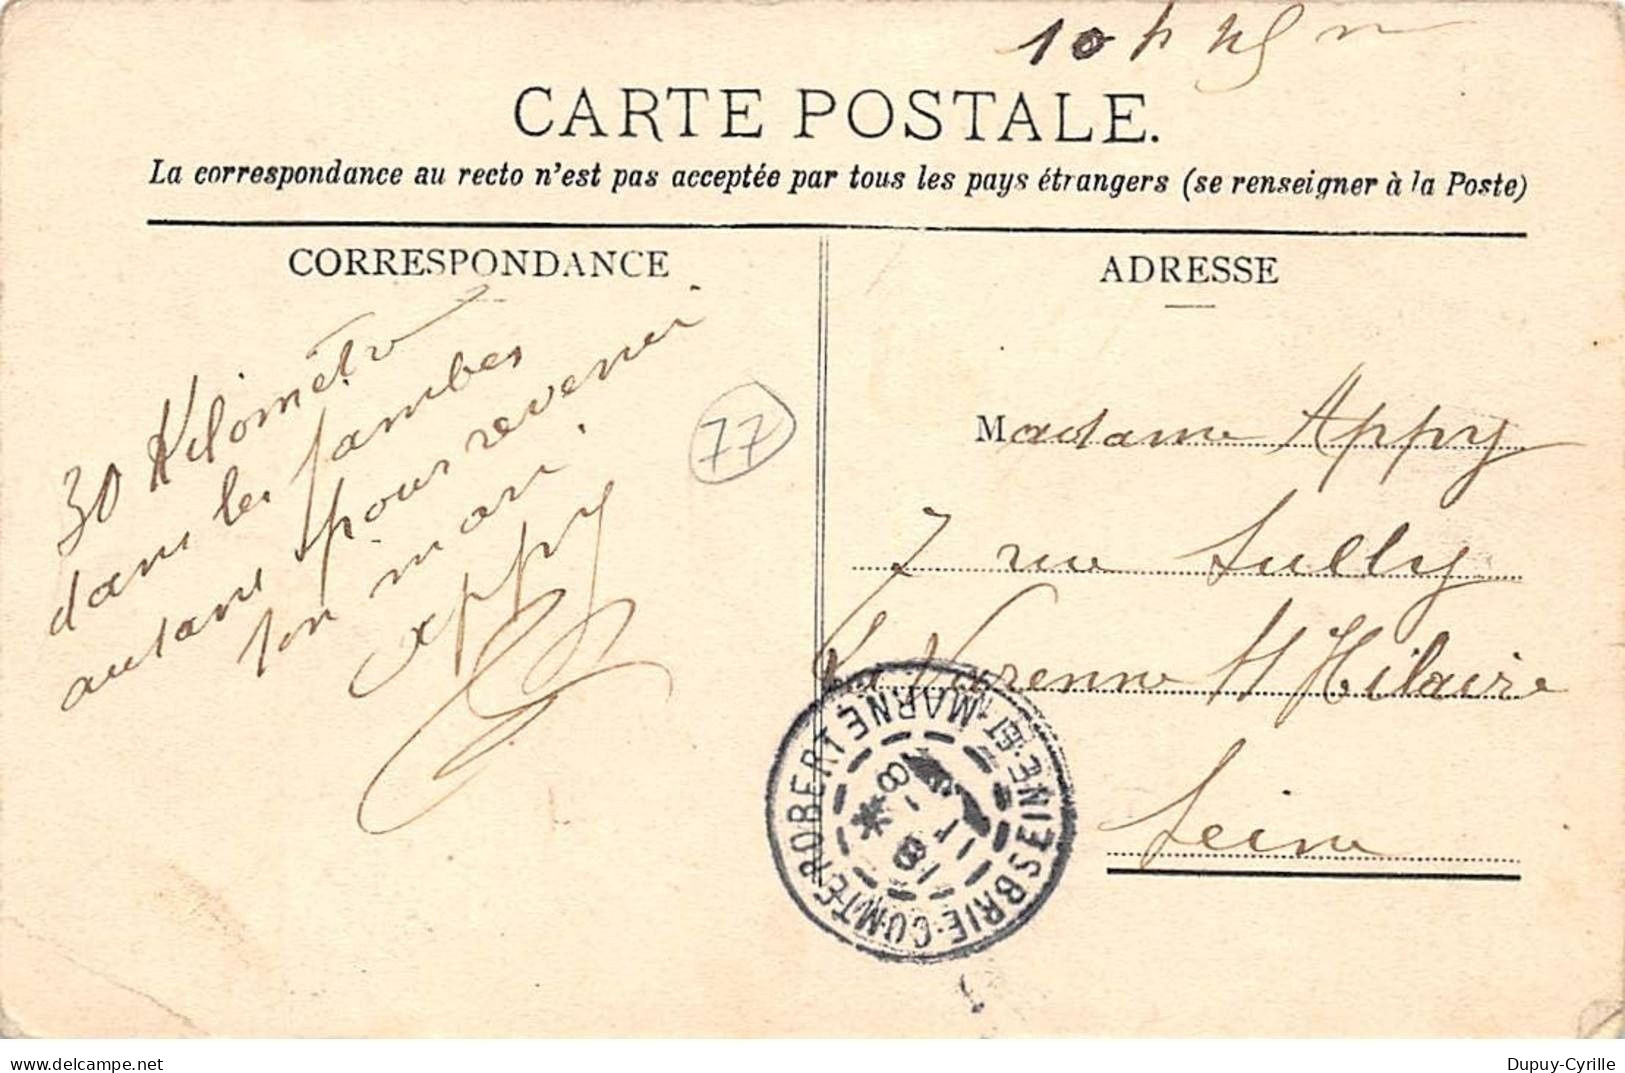 10 h 45 m
CARTE POSTALE.
La correspondance au recto n'est pas acceptée par tous les pays étrangers (se renseigner à la Poste)
CORRESPONDANCE
30 Kilomètr
dans les jambes
autant pour revenir
ton mari
Appy
77
ADRESSE
Madame Appy
7 rue Sully
La Varenne St Hilaire
Seine
BRIE-COMTE-ROBERT
SEINE-ET-MARNE
8
Dupuy-Cyrille
delcampe.net